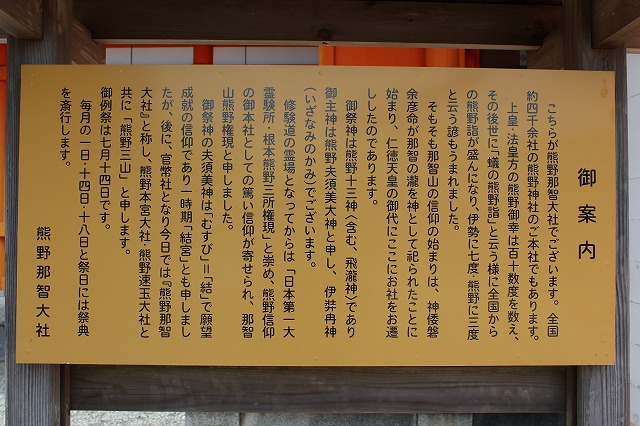 御案内
こちらが熊野那智大社でございます。全国
約四千余社の熊野神社のご本社でもあります。
上皇・法皇方の熊野御幸は百十数度を数え、
その後世に「蟻の熊野詣」と云う様に全国から
の熊野詣が盛んになり、伊勢に七度・熊野に三度
と云う諺もうまれました。
そもそも那智山の信仰の始まりは、神倭磐
余彦命が那智の瀧を神として祀られたことに
始まり、仁徳天皇の御代にここにお社をお遷
ししたのであります。
御祭神は熊野十三神〈含む、飛瀧神〉であり
御主神は熊野夫須美大神と申し、伊弉冉神
(いざなみのかみ)でございます。
修験道の霊場となってからは「日本第一大
霊験所・根本熊野三所権現」と崇め、熊野信仰
の御本社としての篤い信仰が寄せられ、那智
山熊野権現と申しました。
御祭神の夫須美神は「むすび」=「結」で願望
成就の信仰であり一時期「結宮」とも申しまし
たが、後に、官幣社となり今日では『熊野那智
大社』と称し、熊野本宮大社・熊野速玉大社と
共に「熊野三山」と申します。
御例祭は七月十四日です。
毎月の一日・十四日・十八日と祭日には祭典
を斎行します。
熊野那智大社